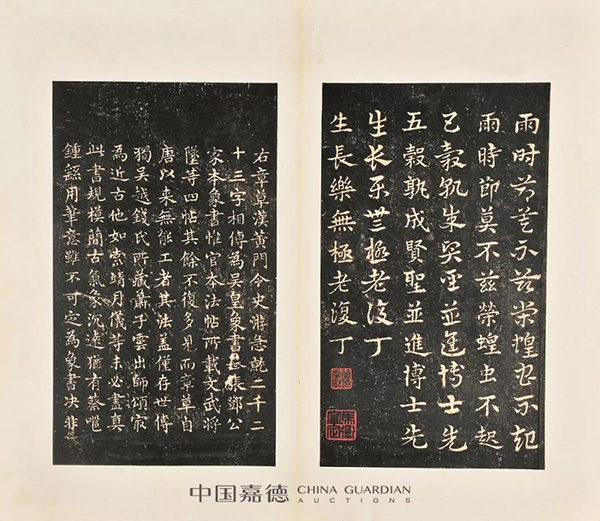 雨時節莫不兹榮蝗虫不起
雨時節莫不兹榮蝗虫不起
五穀孰成賢聖並進博士先
五穀孰成賢聖並進博士先
生長樂無極老復丁
生長樂無極老復丁
右章草漢黃門令史游急就二千二
十三字相傳為吳皇象書張鄧公
家本象書惟官本法帖所載文武將
隊等四帖其餘不復多見而章草自
唐以來無能工者其法蓋僅存世傳
獨吳越錢氏所藏蕭子雲出師頌寂
為近古他如索靖月儀等未必盡真
此書規模簡古氣象沉遠猶有蔡邕
鍾繇用筆意雖不可定為象書决非
中国嘉德 CHINA GUARDIAN
AUCTIONS